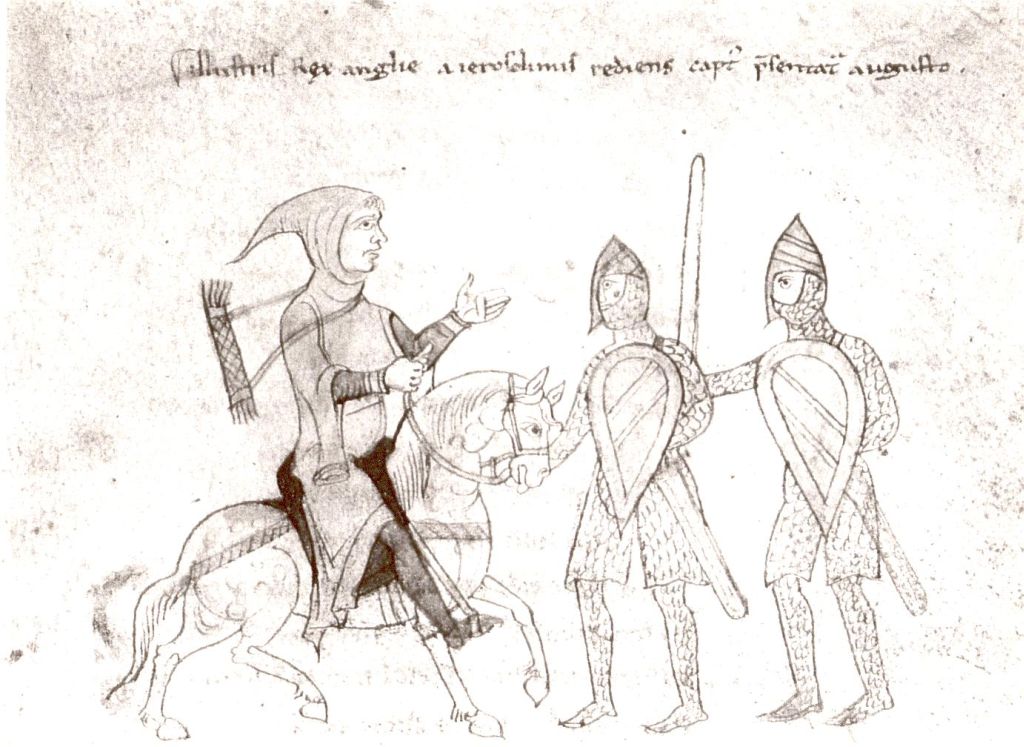 Illustris Rex anglie a ierosolimis rediens capt͛ p̄sentat͛ augusto.